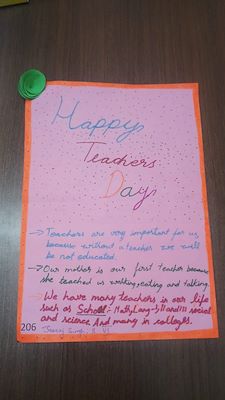 Happy
Teachers
Day
→ Teachers are very important for us
because without a teacher we will
be not educated.
→ Our mother is our first teacher because
she teached us walking, eating and talking.
→ We have many teachers in our life
such as School:- Math, Lang-I, II and III social
and science And many in colleges.
206